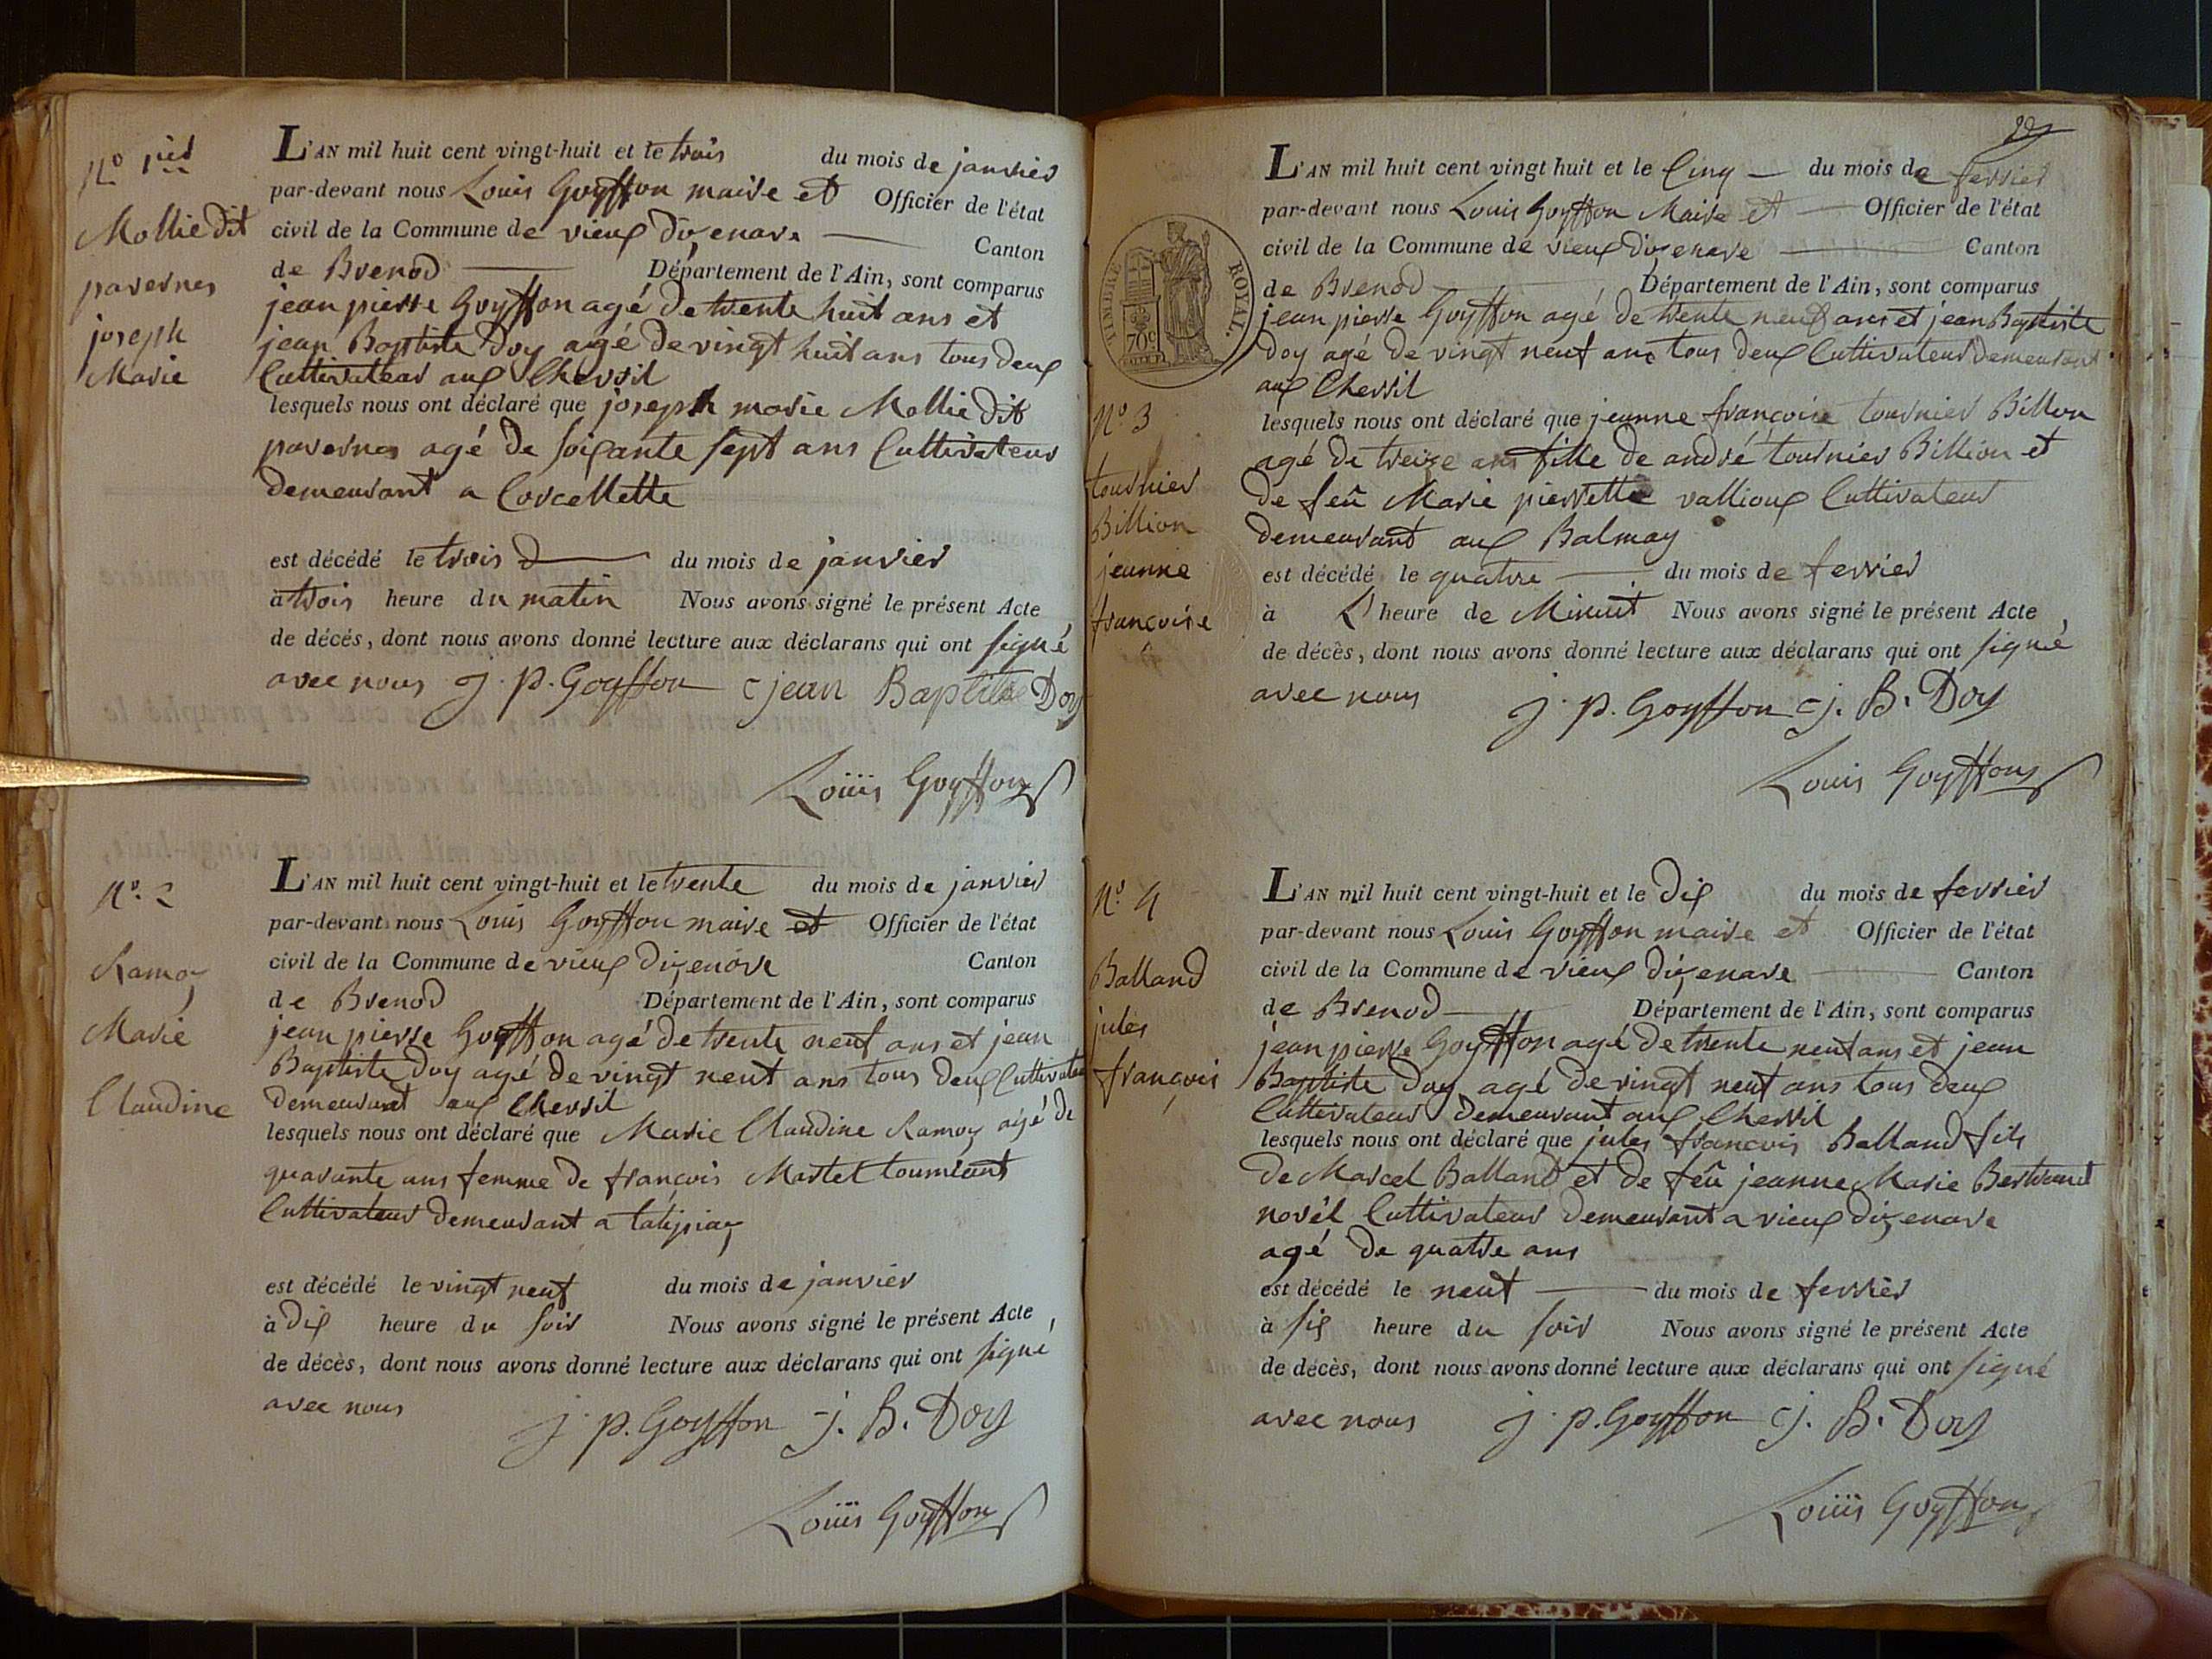 N.o 1ier
Mollie dit
pavernes
joseph
Marie
L'AN mil huit cent vingt-huit et le trois du mois de janvier
par-devant nous Louis Goyffon maire et Officier de l'état
civil de la Commune de vieux dizenave Canton
de Brenod Département de l'Ain, sont comparus
jean pierre Goyffon agé de trente huit ans et
jean Baptiste Doy agé de vingt huit ans tous deux
Cultivateur aux Chevril
lesquels nous ont déclaré que joseph marie Mollie dit
pavernes agé de soixante sept ans Cultivateur
Demeurant a Corcellette
est décédé le trois du mois de janvier
à trois heure du matin Nous avons signé le présent Acte
de décés, dont nous avons donné lecture aux déclarans qui ont signé
avec nous j. p. Goyffon jean Baptiste Doy
Loüis Goyffon
N.o 2
Ramoy
Marie
Claudine
L'AN mil huit cent vingt-huit et le trente du mois de janvier
par-devant nous Louis Goyffon maire et Officier de l'état
civil de la Commune de vieux dizenave Canton
de Brenod Département de l'Ain, sont comparus
jean pierre Goyffon agé de trente neuf ans et jean
Baptiste Doy agé de vingt neuf ans tous deux Cultivateur
Demeurant aux Chevril
lesquels nous ont déclaré que Marie Claudine Ramoy agé de
quarante ans femme de françois Martel
Cultivateur Demeurant a
est décédé le vingt neuf du mois de janvier
à dix heure du soir Nous avons signé le présent Acte
de décès, dont nous avons donné lecture aux déclarans qui ont signé
avec nous j. p. Goyffon j. B. Doy
Loüis Goyffon
TIMBRE ROYAL.
70c
N.o 3
tournier
Billion
jeanne
françoise
L'AN mil huit cent vingt huit et le Cinq du mois de fevrier
par-devant nous Louis Goyffon Maire et Officier de l'état
civil de la Commune de vieux dizenave Canton
de Brenod Département de l'Ain, sont comparus
jean pierre Goyffon agé de trente neuf ans et jean Baptiste
Doy agé de vingt neuf ans tous deux Cultivateur demeurant
aux Chevril
lesquels nous ont déclaré que jeanne françoise tournier Billion
agé de treize ans fille de andré tournier Billion et
de feû Marie pierrette vallioux Cultivateur
demeurant aux Balmay
est décédé le quatre du mois de fevrier
à L' heure de Minuit Nous avons signé le présent Acte
de décès, dont nous avons donné lecture aux déclarans qui ont signé
avec nous j. p. Goyffon j. B. Doy
Louis Goyffon
N.o 4
Balland
jules
françois
L'AN mil huit cent vingt-huit et le dix du mois de fevrier
par-devant nous Louis Goyffon maire et Officier de l'état
civil de la Commune de vieux dizenave Canton
de Brenod Département de l'Ain, sont comparus
jean pierre Goyffon agé de trente neuf ans et jean
Baptiste Doy agé de vingt neuf ans tous deux
Cultivateur demeurant aux Chevril
lesquels nous ont déclaré que jules françois Balland fils
de Marcel Balland et de feû jeanne Marie Bertrand
novél Cultivateur Demeurant a vieux dizenave
agé de quatre ans
est décédé le neuf du mois de fevrier
à six heure du soir Nous avons signé le présent Acte
de décès, dont nous avons donné lecture aux déclarans qui ont signé
avec nous j. p. Goyffon j. B. Doy
Loüis Goyffon